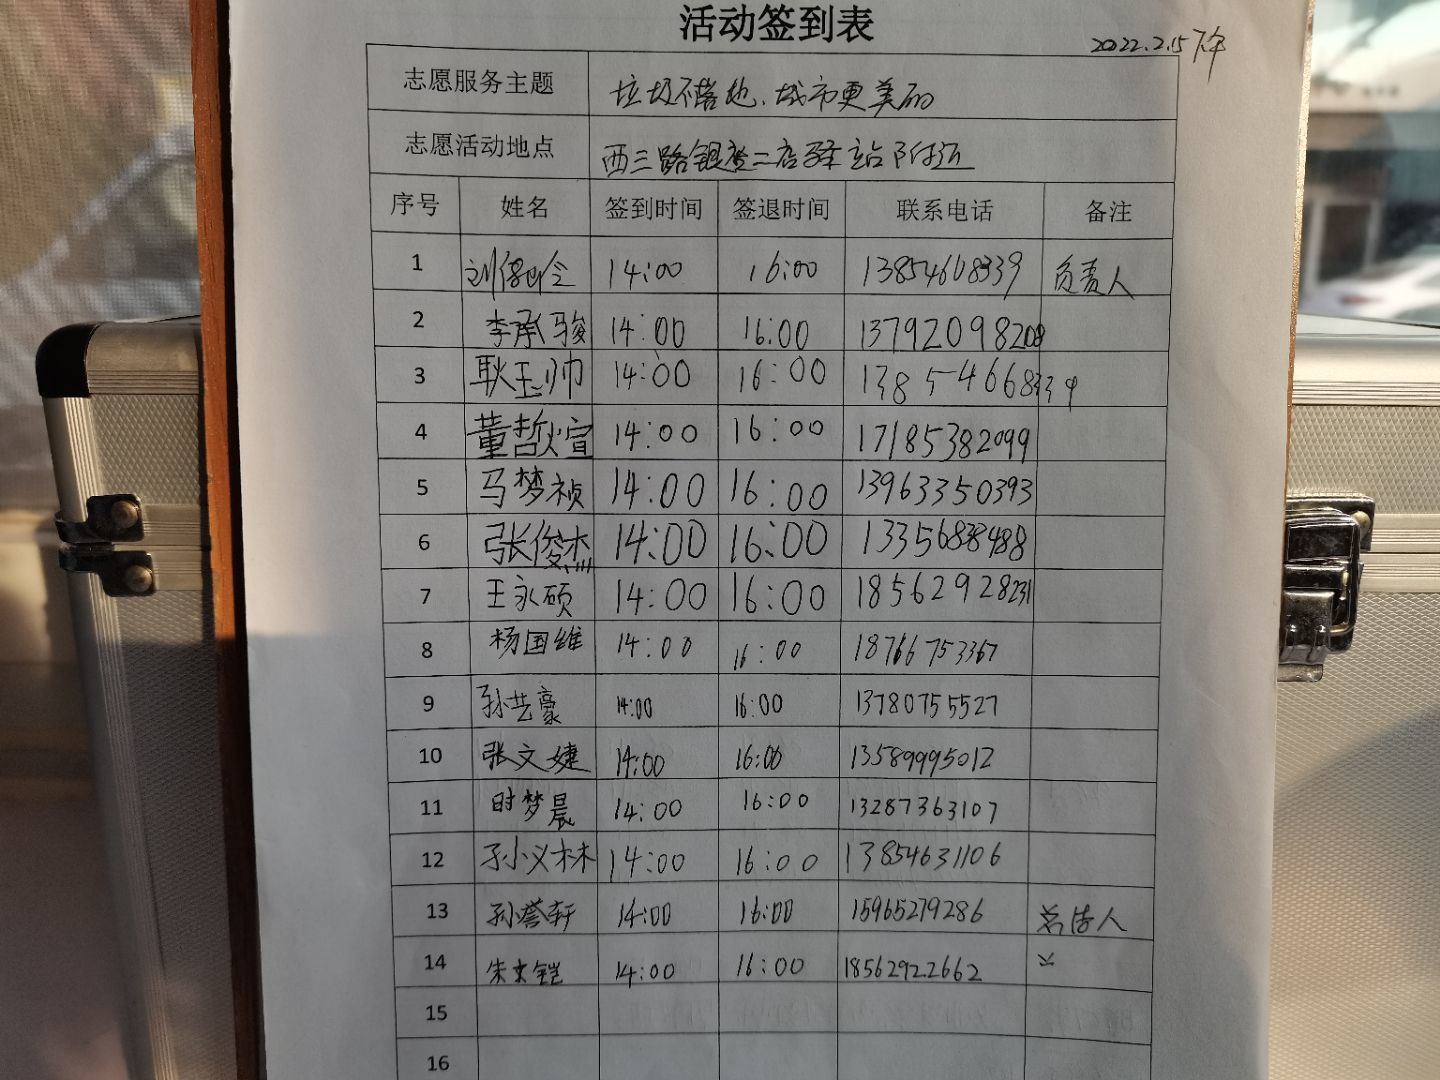 活动签到表
2022.2.15下午
志愿服务主题 垃圾不落地、城市更美丽
志愿活动地点 西三路银座二店驿站附近
序号 姓名 签到时间 签退时间 联系电话 备注
1 14:00 16:00 13854608339 负责人
2 李承骏 14:00 16:00 13792098208
3 耿玉帅 14:00 16:00
4 董哲煊 14:00 16:00 17185382099
5 马梦祯 14:00 16:00 13963350393
6 张俊杰 14:00 16:00 13356838488
7 王永硕 14:00 16:00 18562928231
8 杨国维 14:00 16:00 18766753367
9 孙艺豪 14:00 16:00 13780755527
10 张文婕 14:00 16:00 13589995012
11 时梦晨 14:00 16:00 13287363107
12 孙小义林 14:00 16:00 13854631106
13 孙誉轩 14:00 16:00 15965279286
14 朱文铠 14:00 16:00 18562922662
15
16